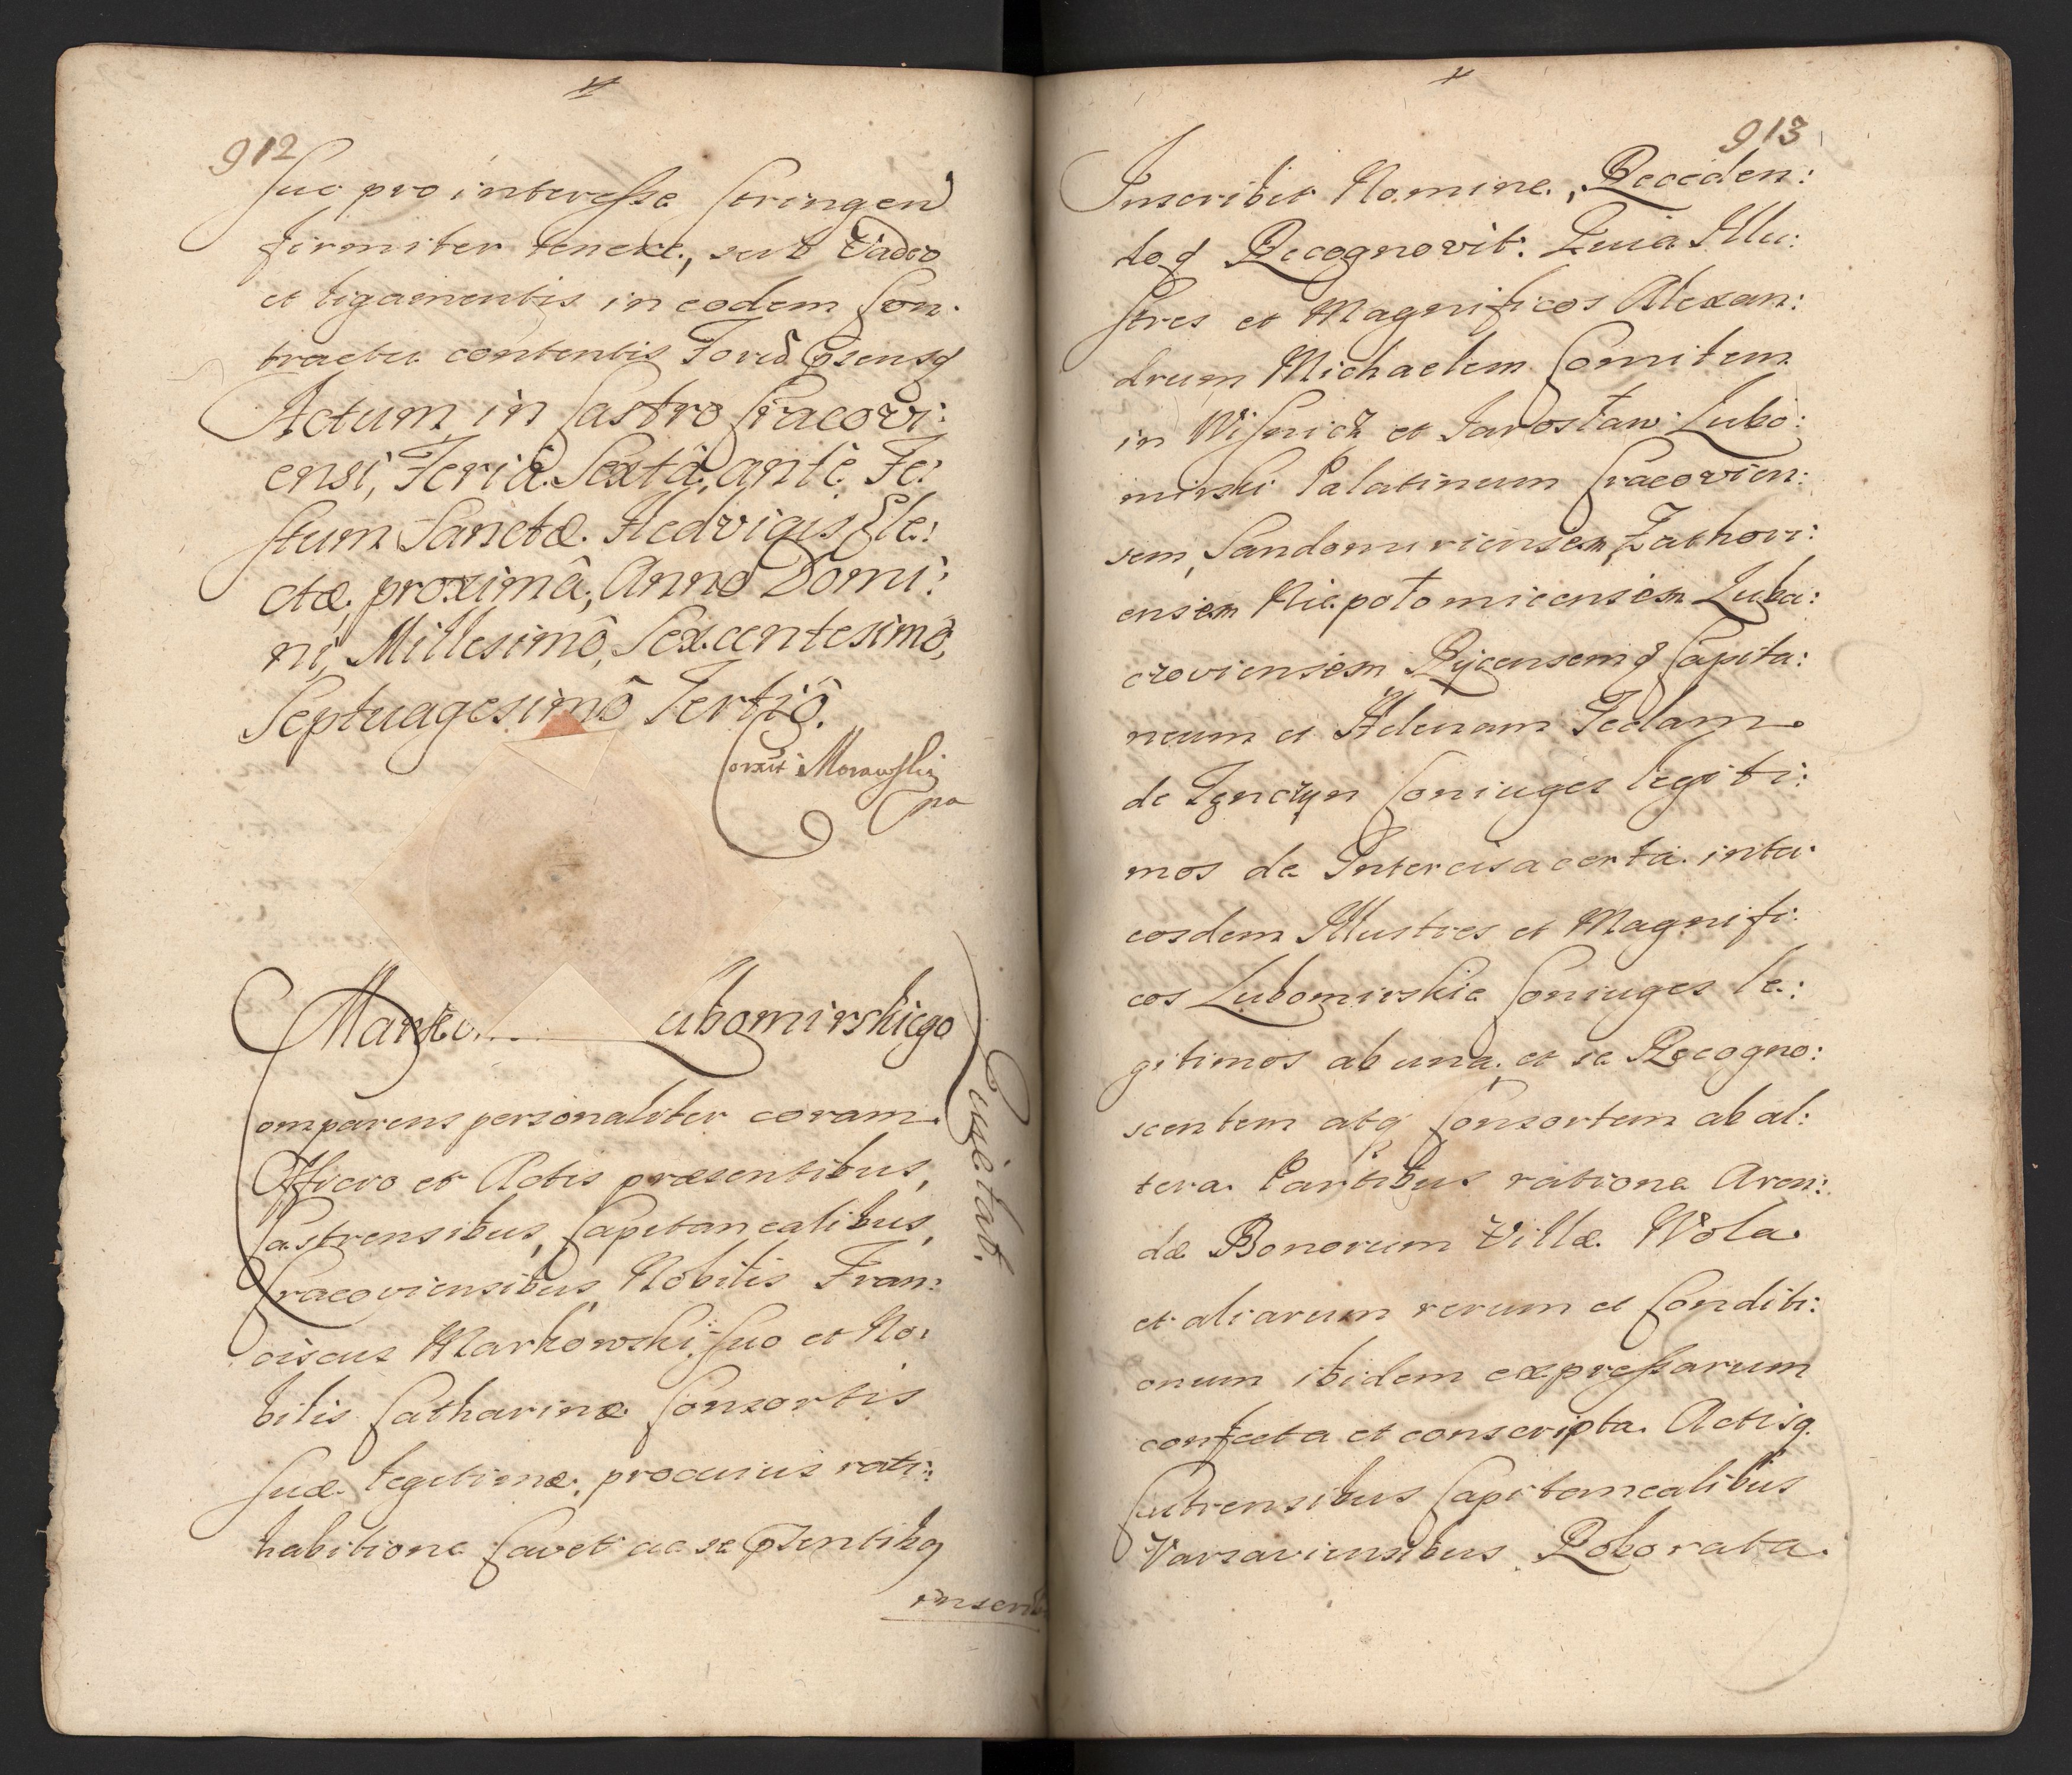 912
suo pro interesse stringen
firmiter tenere, sub Vadio
et ligamentis in eodem Con:
tractu contentis Foro
Actum in Castro Cracovi:
ensi, Feriâ Sextâ, ante Fe:
stum Sanctæ Hedvigis Ele:
ctæ, proximâ, Anno Domi:
ni, Millesimô, Sexcentesimô,
Septuagesimô Tertiô.
Morawski
ubomirskiego
Quietat.
Comparens personaliter coram
Officio et Actis præsentibus,
Castrensibus, Capitanealibus,
Cracoviensibus Nobilis Fran:
ciscus Markowski, suo et No:
bilis Catharinæ Consortis
suæ legitimæ, pro cuius rati:
habitione Cavet ac se
inscrib
913
Inscribit Nomine, Receden:
doq Recognovit: Quia Illu:
stres et Magnificos Alexan:
drum Michaelem Comitem
in Wisnicz et Jarosław Lubo:
mirski Palatinum Cracovien:
sem, Sandomiriensem, Zathori:
ensem Niepołomicensem Luba:
czoviensem Rycensemq Capita:
neum et Helenam Teclam
de Tenczyn Coniuges legiti:
mos de Intercisa certa inter
eosdem Illustres et Magnifi:
cos Lubomirskie Coniuges le:
gitimos ab una et se Recogno:
scentem atq Consortem ab al:
tera Partibus ratione Aren:
dæ Bonorum Villæ Wola
et aliarum rerum et Conditi:
onum ibidem expressarum
confecta et conscripta Actisq
Castrensibus Capitanealibus
Varsaviensibus Roborata